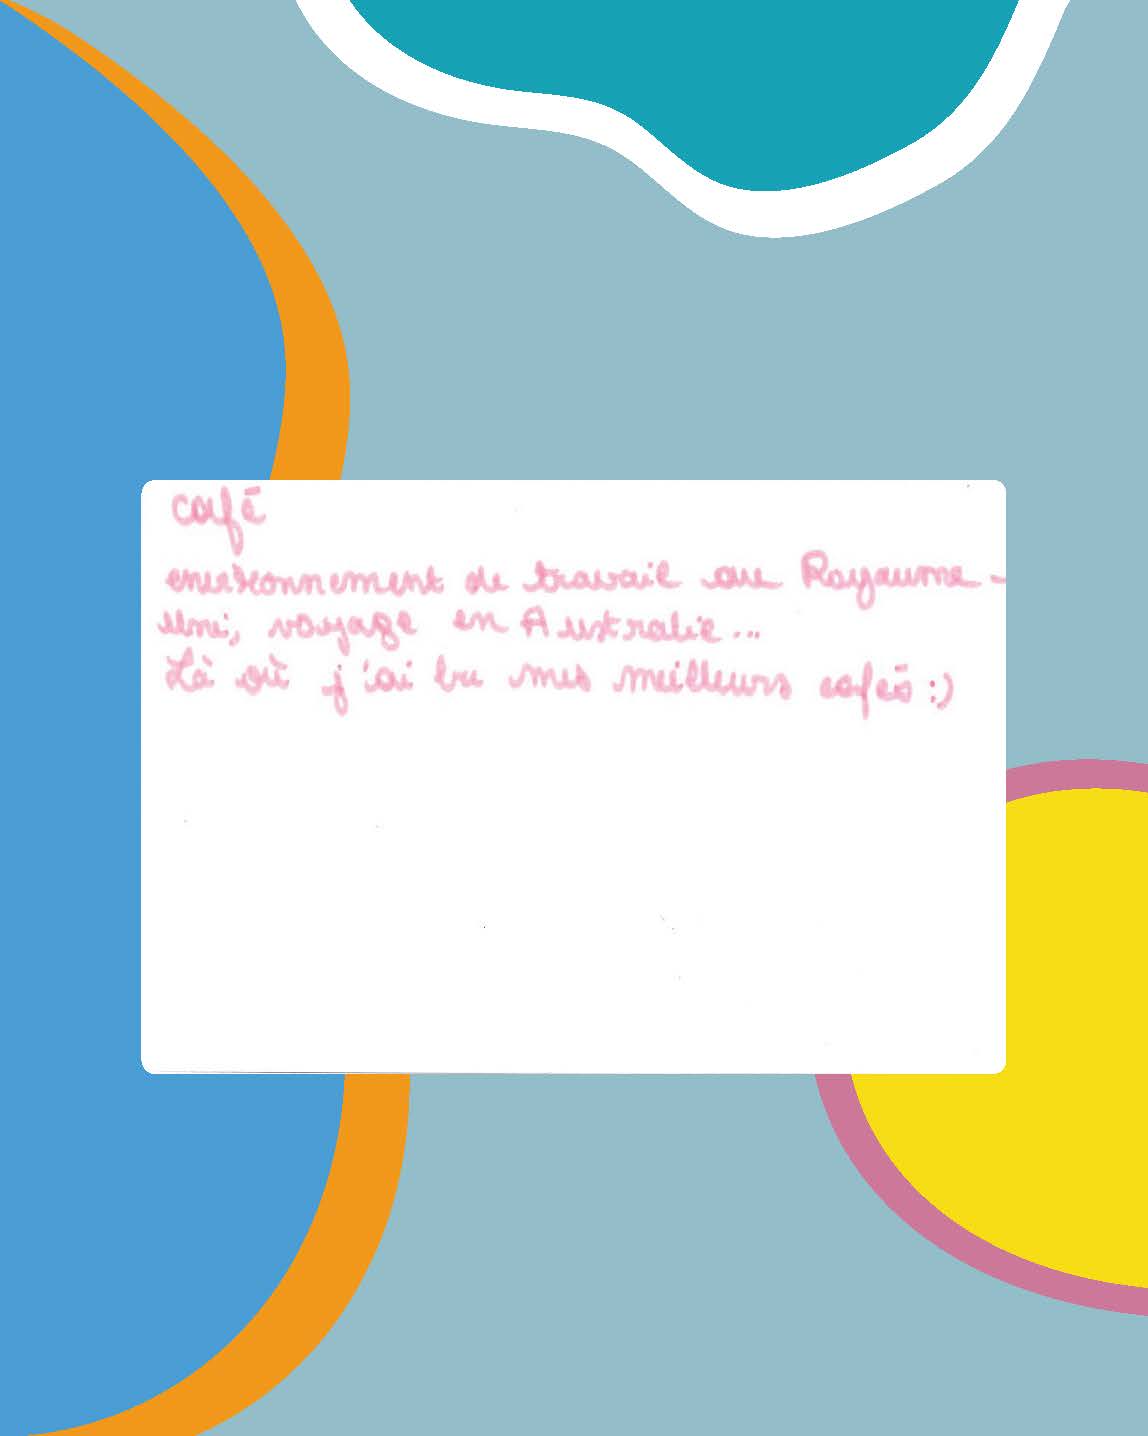 café
environnement de travail au Royaume-
Uni, voyage en Australie...
Là où j'ai bu mes meilleurs cafés :)